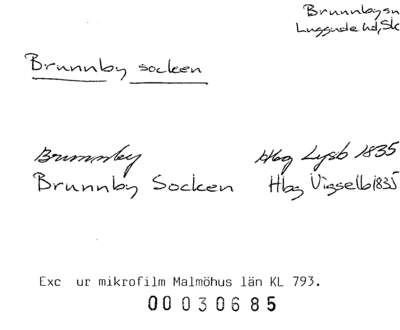 Brunnbysn
Luggude hd, Sk
Brunnby socken
Brunnby Hbg Lysb 1835
Brunnby Socken Hbg Vigselb 1835
Exc ur mikrofilm Malmöhus län KL 793.
00030685